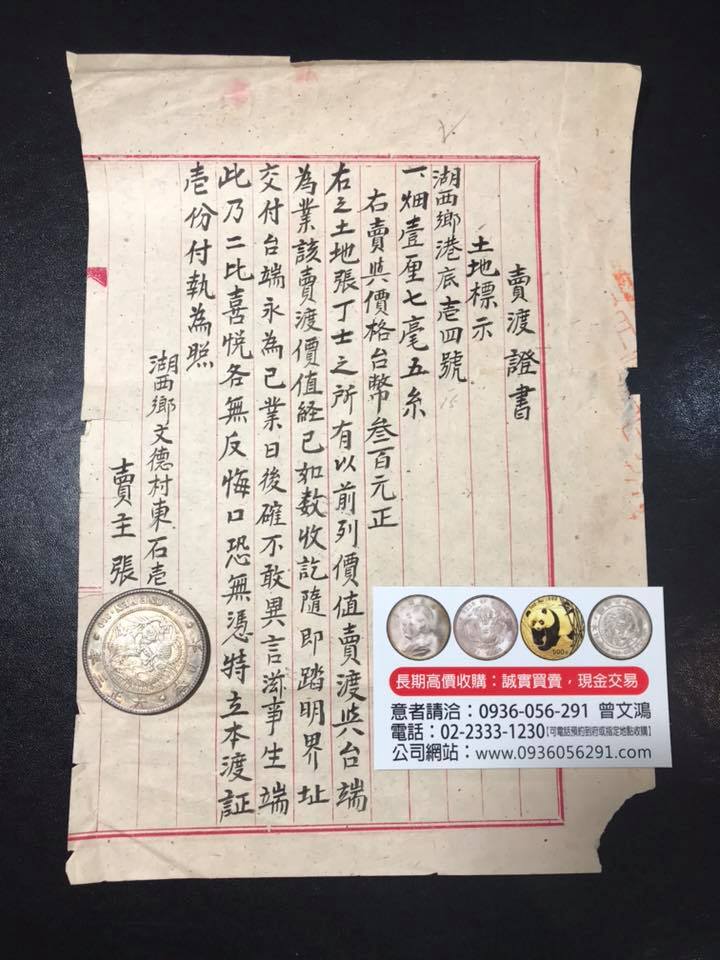 賣渡證書
土地標示
湖西鄉港底壱四號
一、畑壹厘七毫五糸
右賣與價格台幣叁百元正
右之土地張丁士之所有以前列價值賣渡與台端
為業該賣渡價值経已如数收訖隨即踏明界址
交付台端永為己業日後確不敢異言滋事生端
此乃二比喜悦各無反悔口恐無憑特立本渡証
壱份付執為照
湖西鄉文德村東石壱
賣主張
500元
長期高價收購：誠實買賣，現金交易
意者請洽：0936-056-291 曾文鴻
電話：02-2333-1230【可電話預約到府或指定地點收購】
公司網站：www.0936056291.com